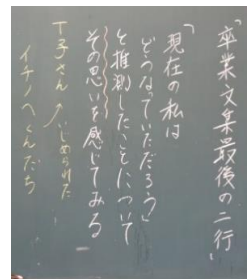 「卒業文集最後の二行」
「現在の私は
どうなっていただろう」
と推測したことについて
その思いを感じてみる
T子さん ↗いじめられた
イチノヘくんたち